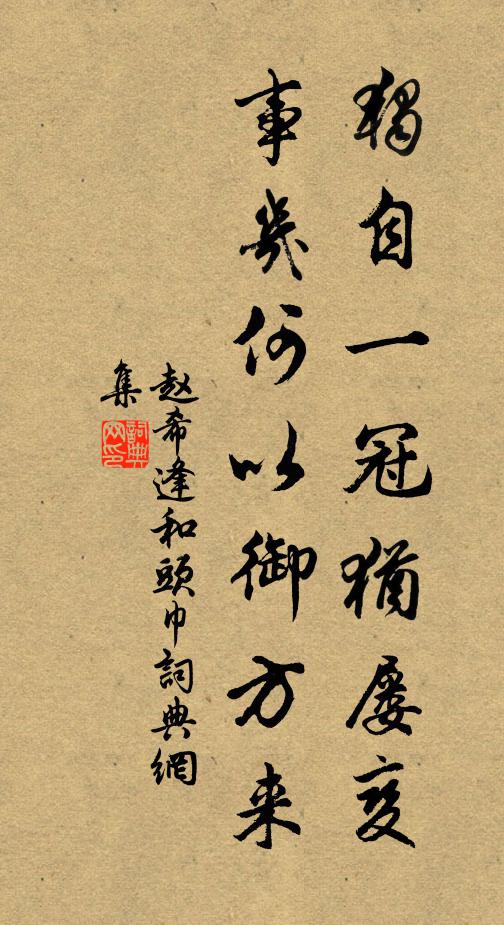 獨自一冠猶屢变
事幾何以御方来
赵希逢和頭巾詞典網
集
詞典
网印